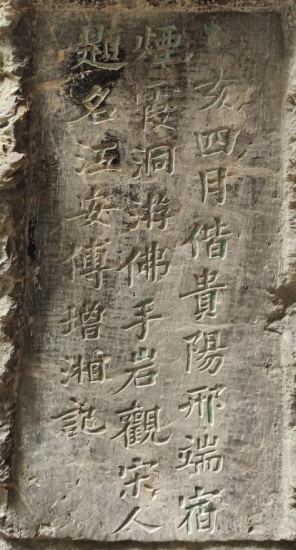 亥四月偕貴陽邢端宿
煙霞洞游佛手岩觀宋人
題名江安傅增湘記